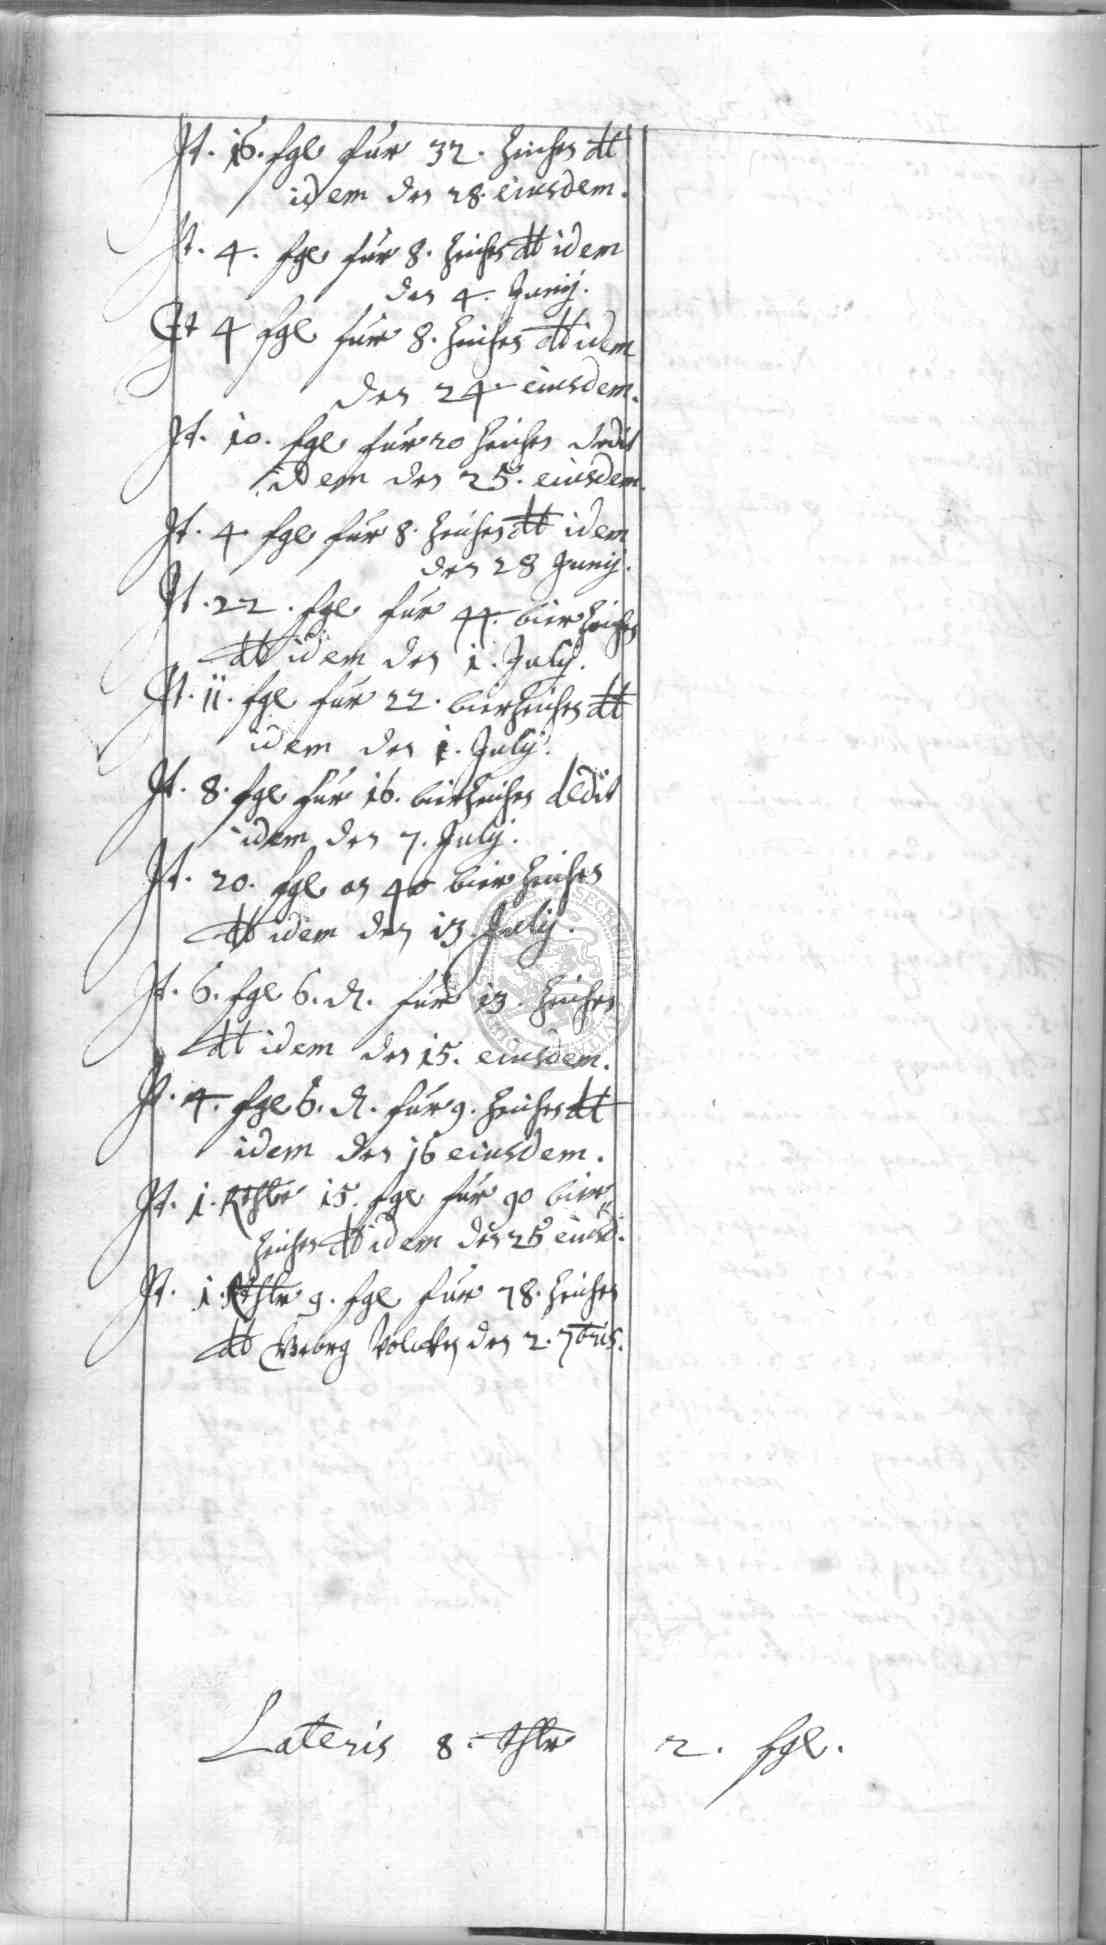 It. 16. sgl für 32. Zeichen dt
idem den 28. eiusdem.
It. 4. sgl für 8. Zeichen dt idem
den 4. Junij.
It 4 sgl für 8. Zeichen dt idem
den 24 eiusdem.
It. 10. sgl für 20 Zeichen dedit
idem den 25. eiusdem.
It. 4 sgl für 8. Zeichen dt idem
den 28 Junij.
It. 22. sgl für 44. bier Zeichen
dt idem den 1. July.
It. 11. sgl für 22. bierZeichen dt
idem den 1. July.
It. 8. sgl für 16. bierZeichen dedit
idem den 7. July.
It. 20. sgl an 40 bier Zeichen
dt idem den 13. July.
It. 6. sgl 6. d. für 13. Zeichen
dt idem den 15. eiusdem.
It. 4. sgl 6. d. für 9. Zeichen dt
idem den 16 eiusdem.
It. 1. Rthlr 15. sgl für 90 bier
Zeichen dt idem den 25 eiusd.
It. 1. Rthlr 9. sgl für 78. Zeichen
dt den 2. 7bris.
Lateris 8. thlr 2. sgl.